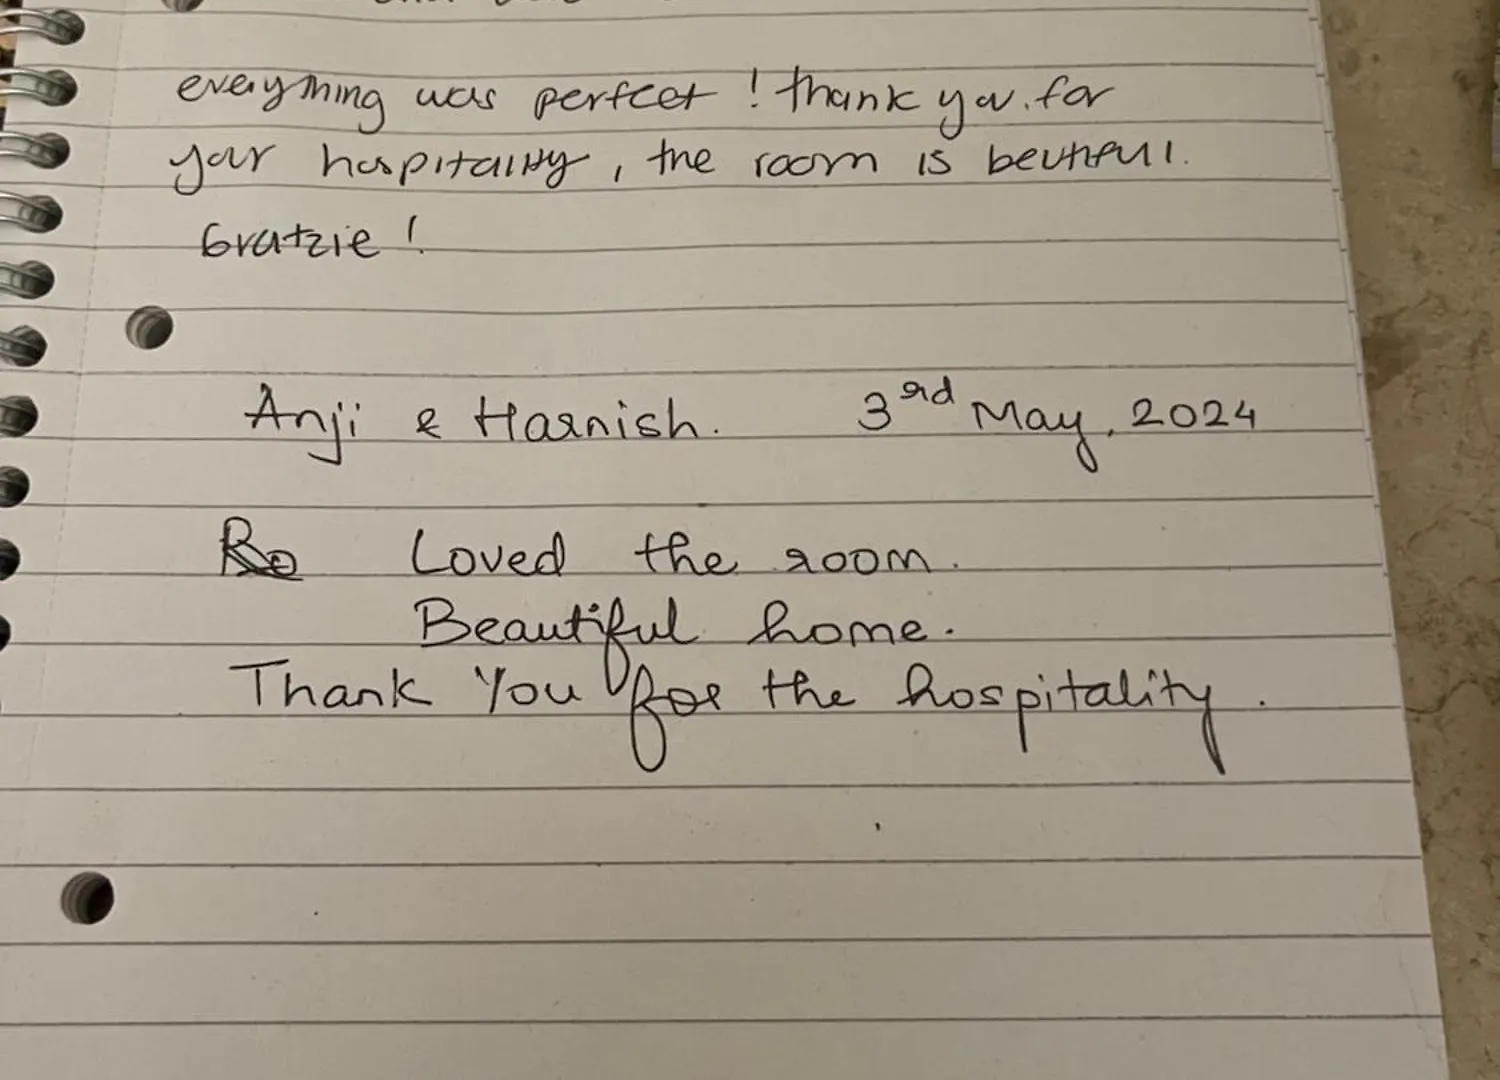 everything was perfect ! thank you. for
your hospitality , the room is beutiful.
Gratzie !
Anji & Harnish. 3rd May, 2024
Loved the room.
Beautiful home.
Thank You for the hospitality.